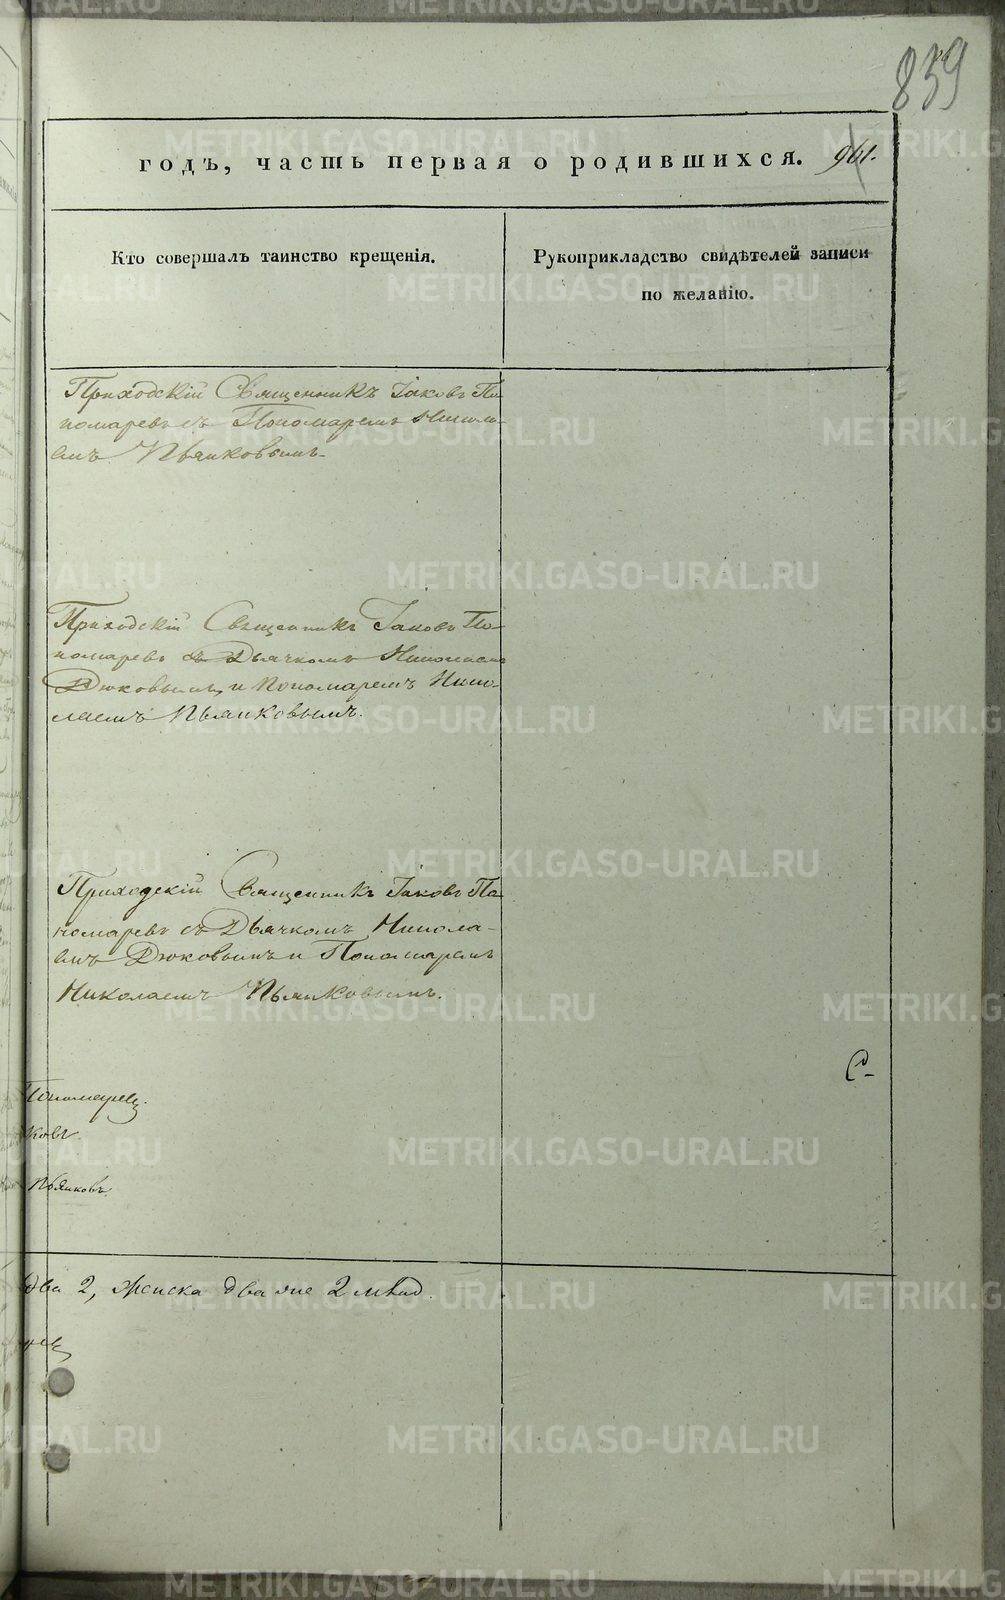 839
годъ, часть первая о родившихся. 961.
Кто совершалъ таинство крещенія.
Рукоприкладство свидѣтелей записи
по желанію.
Приходскій Священникъ Іаковъ По-
номаревъ съ Пономаремъ Никола-
емъ Пьянковымъ.
Приходскій Священникъ Іаковъ По-
номаревъ съ Дьячкомъ Николаемъ
Дюковымъ и Пономаремъ Нико-
лаемъ Пьянковымъ.
Приходскій Священникъ Іаковъ По-
номаревъ съ Дьячкомъ Никола-
емъ Дюковымъ и Пономаремъ
Николаемъ Пьянковымъ.
С-
Пономаревъ.
ковъ
Пьянковъ
два 2, женска два же 2
METRIKI.GASO-URAL.RU